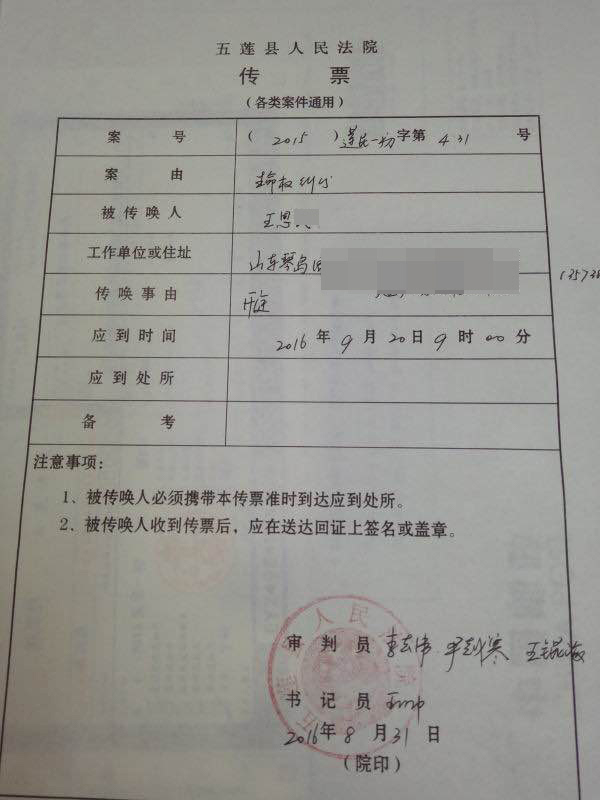 五莲县人民法院
传票
(各类案件通用)
案号 ( 2015 ) 莲民一初字第 431 号
案由 生命权纠纷
被传唤人 王恩
工作单位或住址 山东琴岛
13573
传唤事由 开庭
应到时间 2016年9月20日9时00分
应到处所
备考
注意事项:
1、被传唤人必须携带本传票准时到达应到处所。
2、被传唤人收到传票后,应在送达回证上签名或盖章。
审判员
书记员
2016年8月31日
(院印)